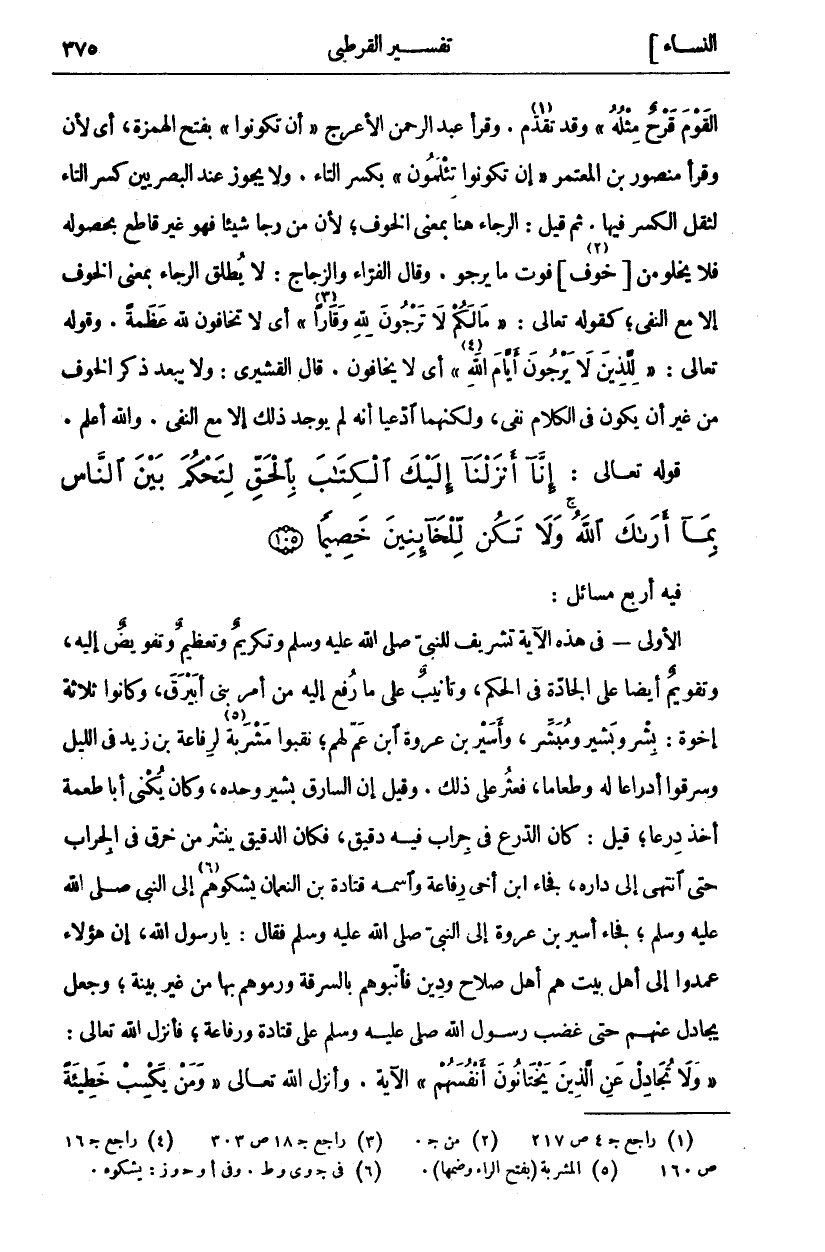 النساء ] تفسير القرطبى ٣٧٥
القَوْمَ قَرْحٌ مِثْلُهُ » (١) وقد تقدّم . وقرأ عبد الرحمن الأعرج « أن تكونوا » بفتح الهمزة، أى لأن
وقرأ منصور بن المعتمر « إن تكونوا تِئْلَمُون » بكسر التاء . ولا يجوز عند البصريين كسر التاء
لثقل الكسر فيها . ثم قيل : الرجاء هنا بمعنى الخوف؛ لأن من رجا شيئا فهو غير قاطع بحصوله
فلا يخلو من [ خوف ] (٢) فوت ما يرجو . وقال الفرّاء والزجاج : لا يُطلق الرجاء بمعنى الخوف
إلا مع النفى؛ كقوله تعالى : « مَالَكُمْ لَا تَرْجُونَ لِلّهِ وَقَاراً » (٣) أى لا تخافون لله عَظَمةً . وقوله
تعالى : « لِلَّذِينَ لَا يَرْجُونَ أَيَّامَ اللهِ » (٤) أى لا يخافون . قال القشيرى : ولا يبعد ذكر الخوف
من غير أن يكون فى الكلام نفى، ولكنهما ٱدّعيا أنه لم يوجد ذلك إلا مع النفى . والله أعلم .
قوله تعـالى : إِنَّآ أَنزَلْنَآ إِلَيْكَ ٱلْكِتَٰبَ بِٱلْحَقِّ لِتَحْكُمَ بَيْنَ ٱلنَّاسِ
بِمَآ أَرَىٰكَ ٱللَّهُ ۚ وَلَا تَكُن لِّلْخَآئِنِينَ خَصِيمًا ١٠٥
فيه أربع مسائل :
الأولى — فى هذه الآية تشريف للنبىّ صلى الله عليه وسلم وتكريمٌ وتعظيمٌ وتفويضٌ إليه،
وتقويمٌ أيضا على الجادّة فى الحكم، وتأنيبٌ على ما رُفع إليه من أمر بنى أبَيْرَق، وكانوا ثلاثة
إخوة : بِشْر وبَشير ومُبَشّر ، وأُسَيْر بن عروة ٱبن عمّ لهم؛ نقبوا مَشْرَبة (٥) لرِفاعة بن زيد فى الليل
وسرقوا أدراعا له وطعاما، فعثُر على ذلك . وقيل إن السارق بشير وحده، وكان يُكْنى أبا طعمة
أخذ دِرعا؛ قيل : كان الدّرع فى جِراب فيـه دقيق، فكان الدقيق ينتثر من خرق فى الجِراب
حتى ٱنتهى إلى داره، فجاء ابن أخى رِفاعة وٱسمـه قتادة بن النعمان يشكوهم (٦) إلى النبى صلى الله
عليه وسلم ؛ فجاء أسير بن عروة إلى النبىّ صلى الله عليه وسلم فقال : يا رسول الله، إن هؤلاء
عمدوا إلى أهل بيت هم أهل صلاح ودِين فأنّبوهم بالسرقة ورموهم بها من غير بينة ؛ وجعل
يجادل عنهـم حتى غضب رسـول الله صلى عليـه وسلم على قتادة ورفاعة ؛ فأنزل الله تعالى :
« وَلَا تُجَادِلْ عَنِ الَّذِينَ يَخْتَانُونَ أَنْفُسَهُمْ » الآية . وأنزل الله تعـالى « وَمَنْ يَكْسِبْ خَطِيئَةً
(١) راجع ج ٤ ص ٢١٧ (٢) من ج . (٣) راجع ج ١٨ ص ٣٠٣ (٤) راجع ج ١٦
ص ١٦٠ (٥) المشربة (بفتح الراء وضمها) . (٦) فى ج و ى و ط . وفى أ و ح و ز : يشكوه .